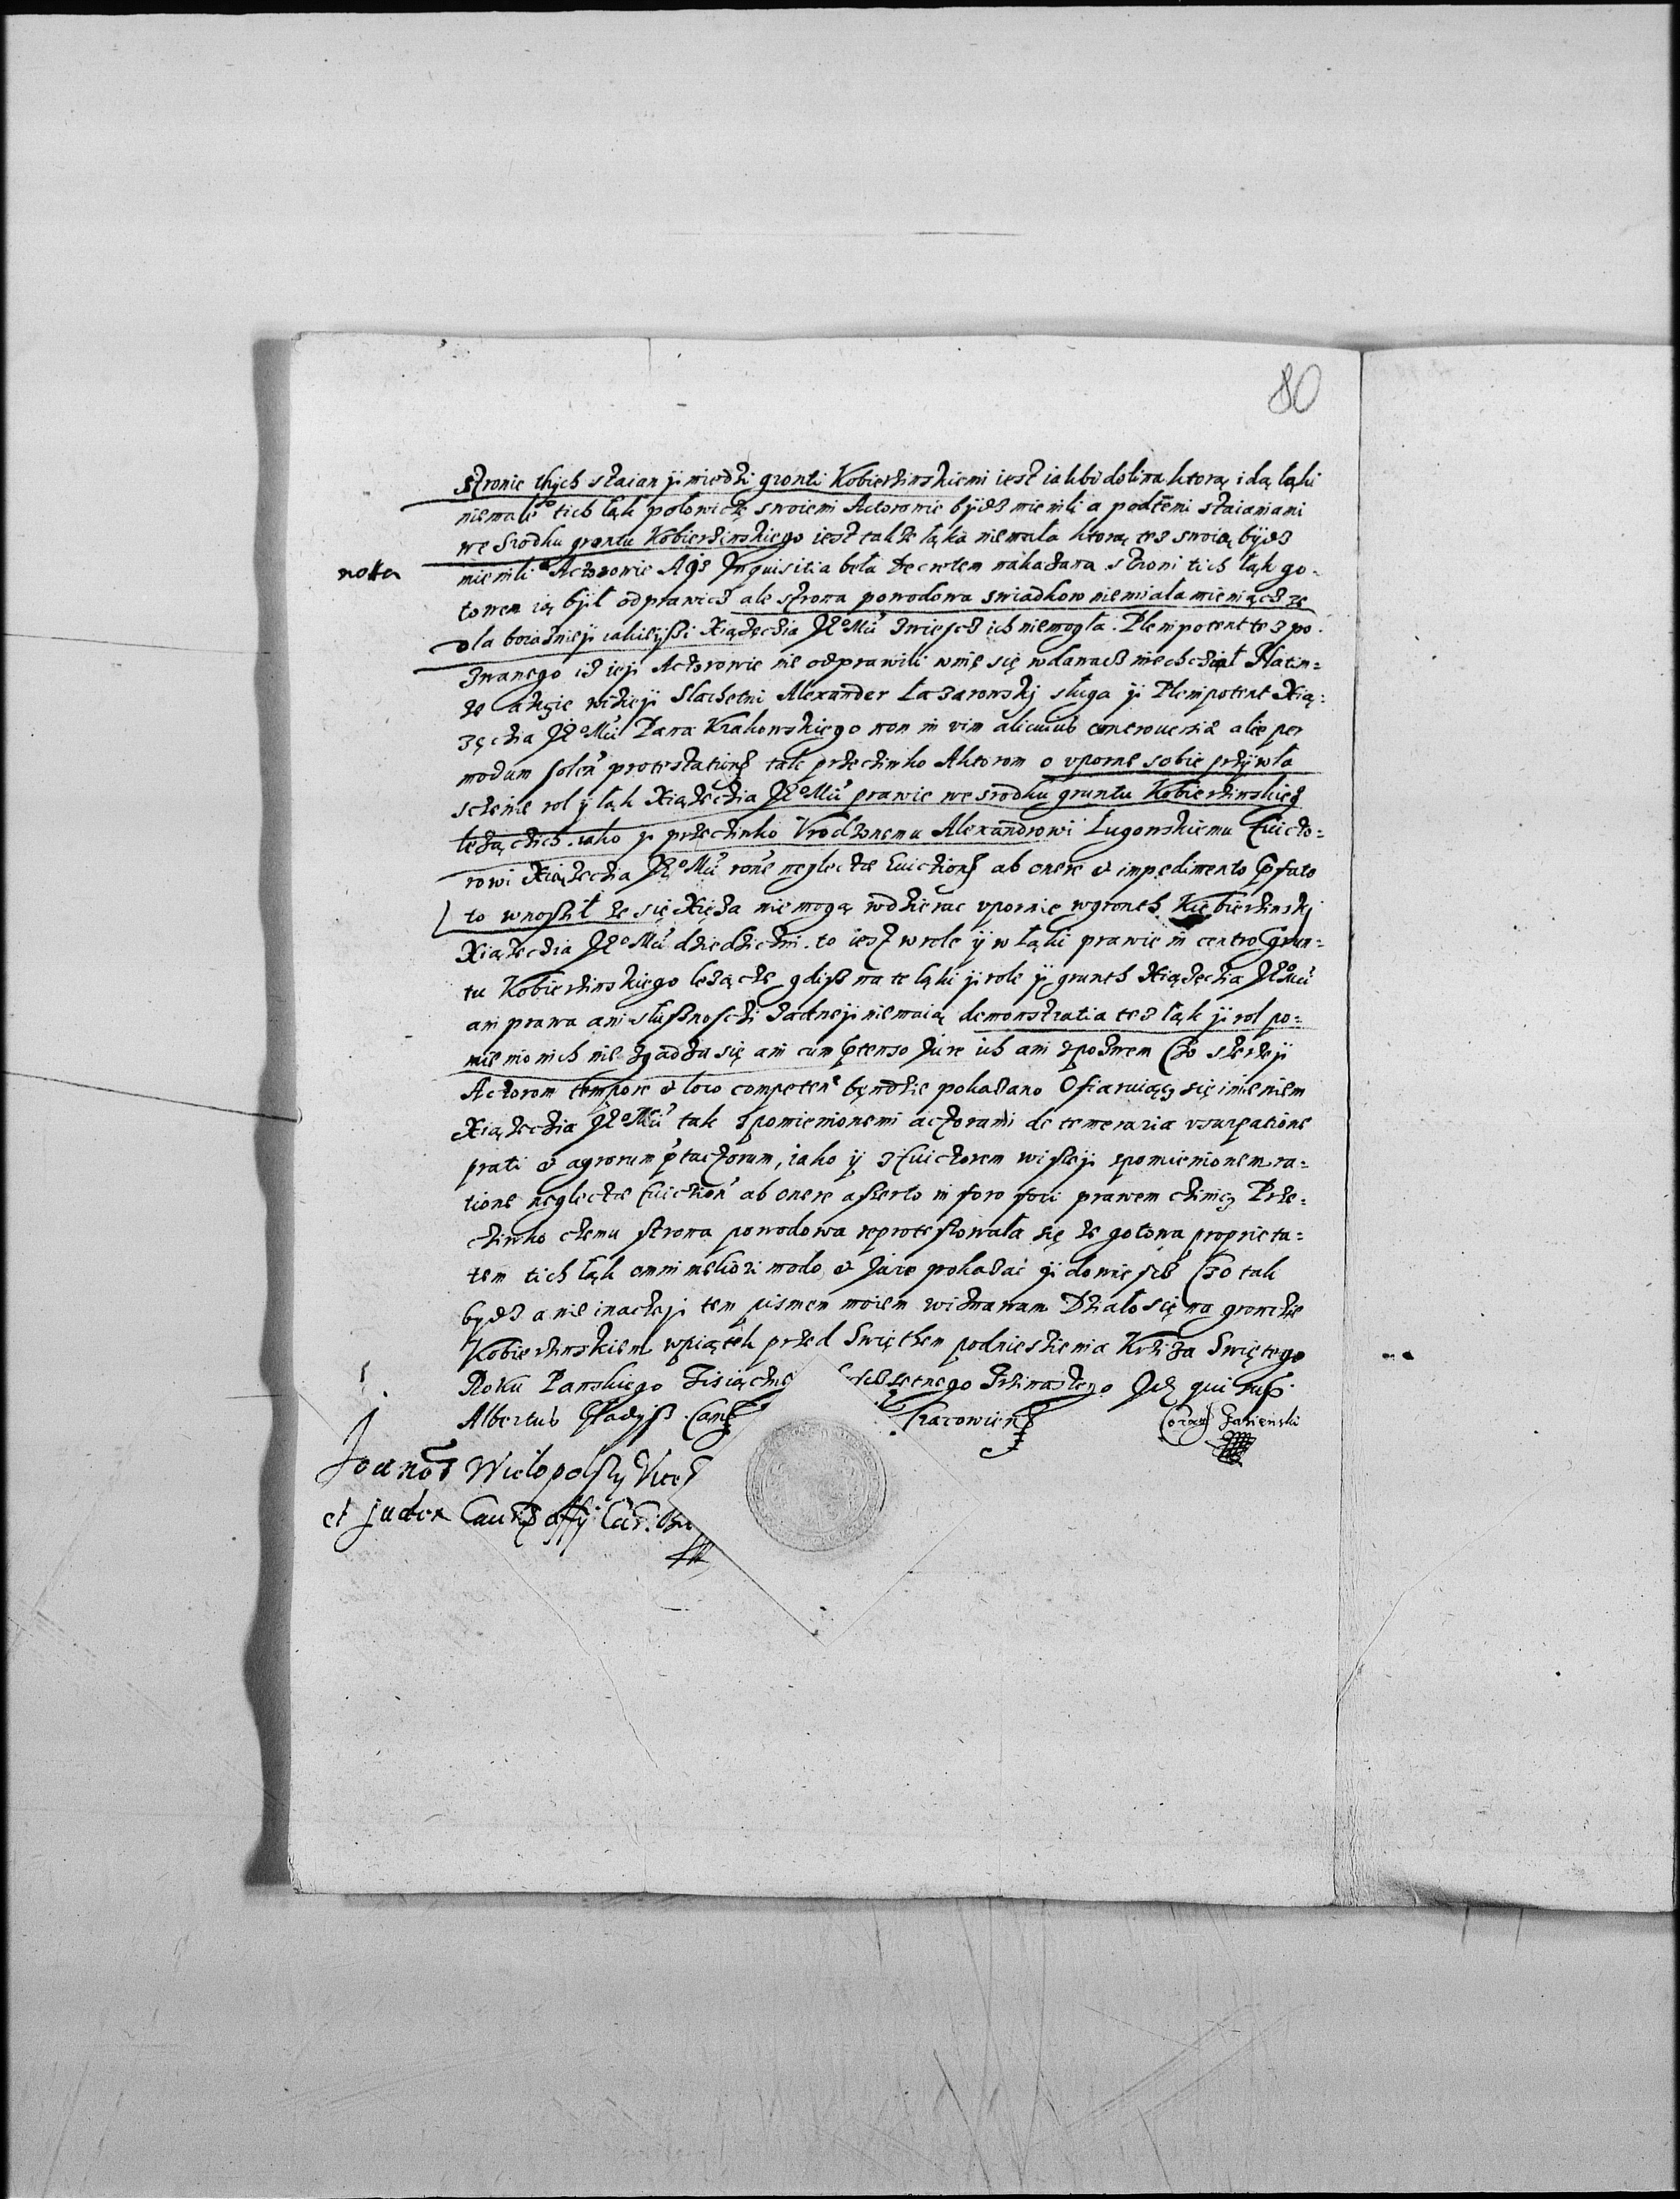 80
stronie thych staian ÿ miedzi gronti Kobierzinskiemi iest iakbi dolina ktorą idą łąki
niemałe tich łąk połowicze swoiemi Actorowie bÿdz mienili a podtemi staianiami
we srodku grontu Kobierzinskiego iest takze łąka niemała ktorą tez swoią bÿdz
notta
mienili Actorowie Agdÿ Inquisitia beła Decretem nakazana stroni tich łąk go-
towem ią bÿł odprawicz ale strona powodowa swiadkow niemiała mieniącz ze
dla boiazniej iakieÿsi Xiązęczia Je͞o Mći zwiescz ich niemogła. Plenipotent tez po-
zwanego iz iej Actorowie nie odprawili wnie się wdawacz niechcział
ze wizeji Slachetni Alexander Łazarowskj sługa ÿ Plenipotent Xią-
zęczia Je͞o Mći Pana Krakowskięgo non in vim alicuius controuersiæ ale per
modum solen protestationis tak przecziwko Aktorom o vporne sobie przÿwła
sczenie rol ÿ łąk Xiązęczia Je͞o Mći prawie we srodku gruntu Kobierzinskieg
lezączich. iako ÿ przecziwko Vrodzonemu Alexandrowi Ługowskiemu Euicto-
rowi Xiązęczia Je͞o Mći rone neglectæ Euictionis ab onere et impedimento
to wnosził ze się Xięza nie mogą wdzierac vpornie wgronth Kobierzinskj
Xiązęczia Je͞o Mći dziedziczni. to iest w role ÿ w łąki prawie in centro Grun-
tu Kobierzinskiego lezącze gdisz na te łąki ÿ role ÿ grunth Xiązęczia Je͞o Mći
ani prawa ani słusznosczi zadneji niemaią demonstratia tez łąk ÿ rol po-
mienionich nie zgadza się ani cum ptenso Jure ich ani spozwem Czo szerzeÿ
Actorom tempore et loco competen będzie pokazano Ofiaruiącz się imieniem
Xiązęczia Je͞o Mći tak spomienionemi actorami de temeraria vsurpatione
prati et agrorum ptactorum, iako ÿ z Euictorem wiszeji spomienionem ra-
tione neglectæ Euiction ab onere asserto in foro fori prawem czinicz Prze-
cziwko czemu strona powodowa reprotestowała się ze gotowa proprieta-
tem tich łąk omni meliori modo et Jure pokazać ÿ dowiescz Czo tak
bydz a nie inaczeji tem pismem moiem wiznawam Działo się na gronczie
Kobierzinskiem wpiątek przed Swiętem podniesienia Krziza Swiętego
Roku Panskiego Tisiączne sescsetnego Trzinastego Id qui sup.
Albertus Gładÿsz Cracowiens
Joannes Wielopolsky Vice
et Judex